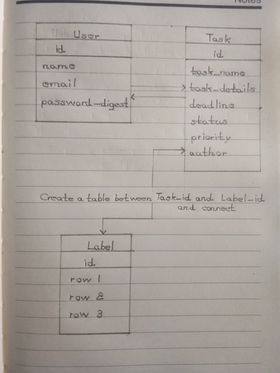 Notes
User
id
name
email
password-digest
Task
id
task_name
task_details
deadline
status
priority
author
Create a table between Task_id and Label_id
and connect
Label
id
row 1
row 2
row 3